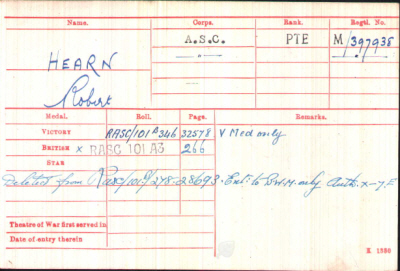 Name. Corps. Rank. Regtl. No.
HEARN A.S.C. PTE M/397938
Robert
Medal. Roll. Page. Remarks.
VICTORY RASC/101A346 32578 V Med only
BRITISH x RASC 101 A3 266
STAR
Deleted from RASC/101 /278-28693. Ent: to B.W.M. only Auth. x-7.E
Theatre of War first served in
Date of entry therein
K 1380